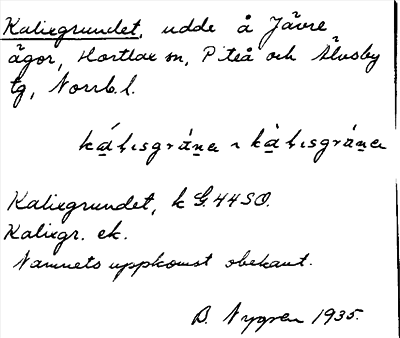 Kalixgrundet, udde å Jävre
ägor, Hortlax sn, Piteå och Älvsby
tg, Norrb. l.
Kalixgrundet, k G. 44 SO.
Kalixgr. ek.
Namnets uppkomst obekant.
B. Nygren 1935.